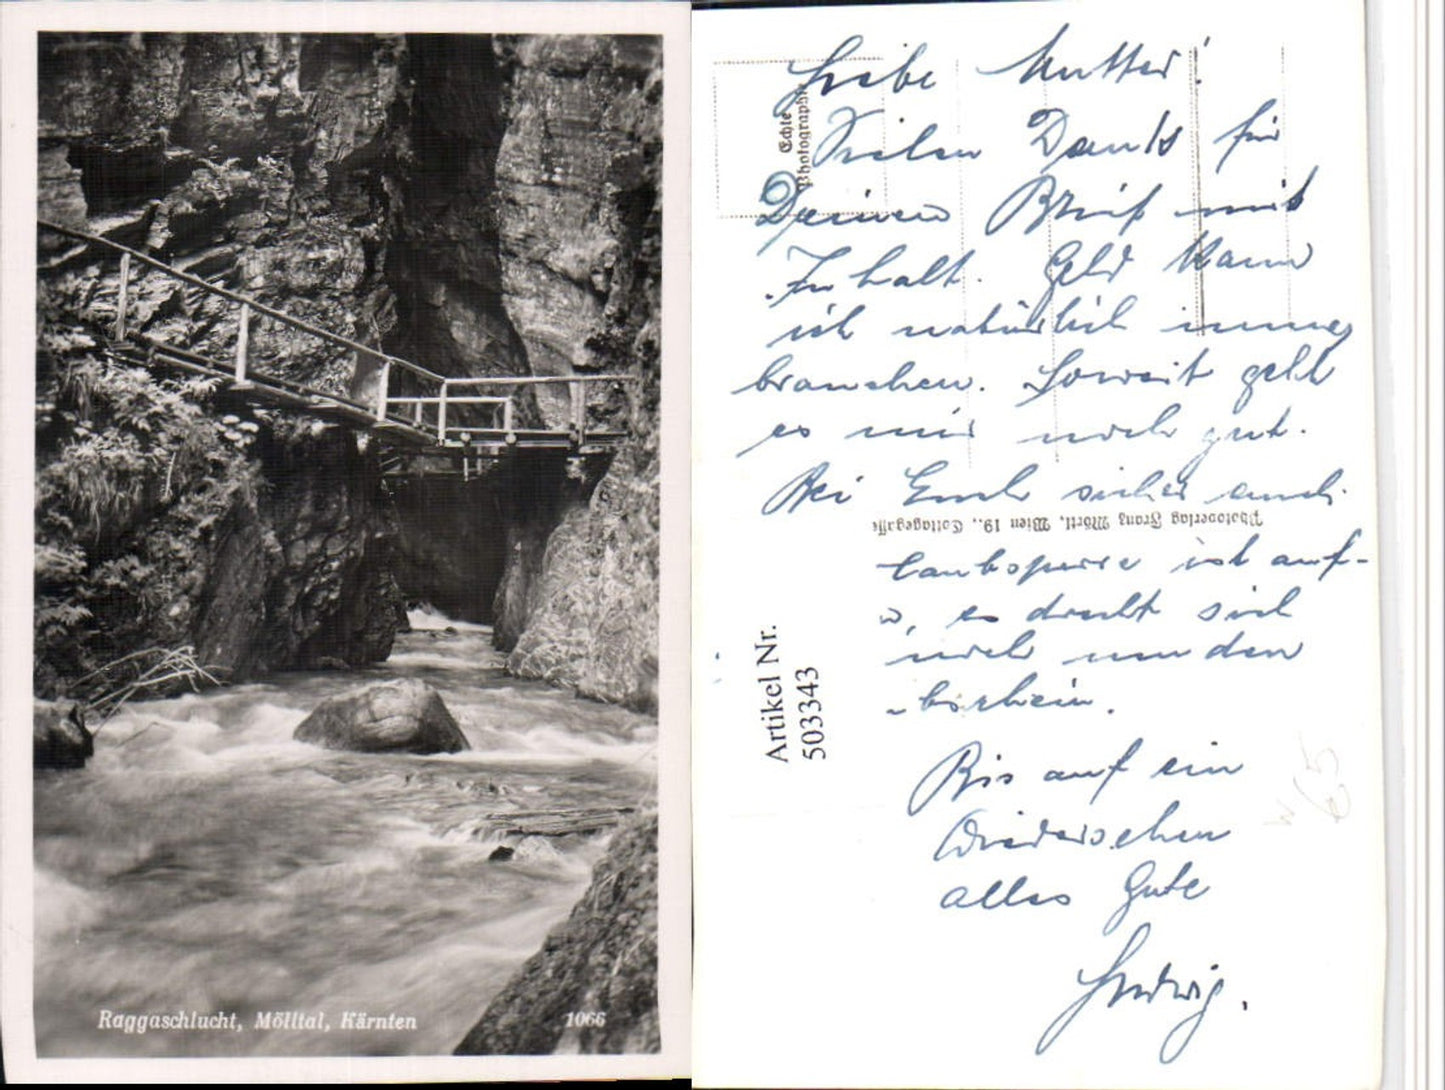 Raggaschlucht, Mölltal, Kärnten
1066
Liebe Mutter!
Vielen Dank für
Deinen Brief mit
Inhalt. Geld kann
ich natürlich immer
brauchen. Soweit geht
es mir noch gut.
Bei Euch sicher auch.
ist auf-
es dreht sich
noch um den
Bis auf ein
Wiedersehen
alles Gute
Ludwig.
Echte
Photographie
Photoverlag Franz Mörtl, Wien 19., Cottagegasse
Artikel Nr.
503343